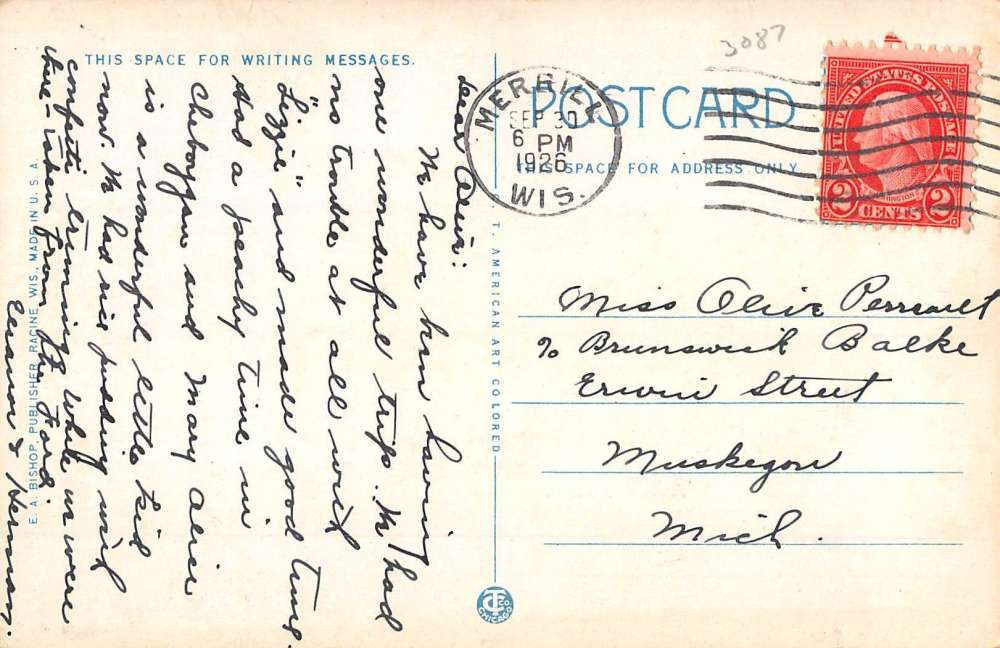 3087
THIS SPACE FOR WRITING MESSAGES.
POST CARD
THIS SPACE FOR ADDRESS ONLY
MERRILL
SEP 30
6 PM
1926
WIS.
UNITED STATES POSTAGE
WASHINGTON
2 CENTS 2
Dear Olive:
We have been having
one wonderful trip. We had
no trouble at all with
"Lizzie" and made good time.
Had a peachy time in
Cheboygan and Mary Alice
is a wonderful little kid
now. We had rice pudding with
confetti trimming while we were
there - taken from the Ford.
Eleanor & Herman.
Miss Olive Perreault
% Brunswick Balke
Erwin Street
Muskegon
Mich.
E. A. BISHOP, PUBLISHER, RACINE, WIS., MADE IN U. S. A.
T. AMERICAN ART COLORED
CT CO
CHICAGO